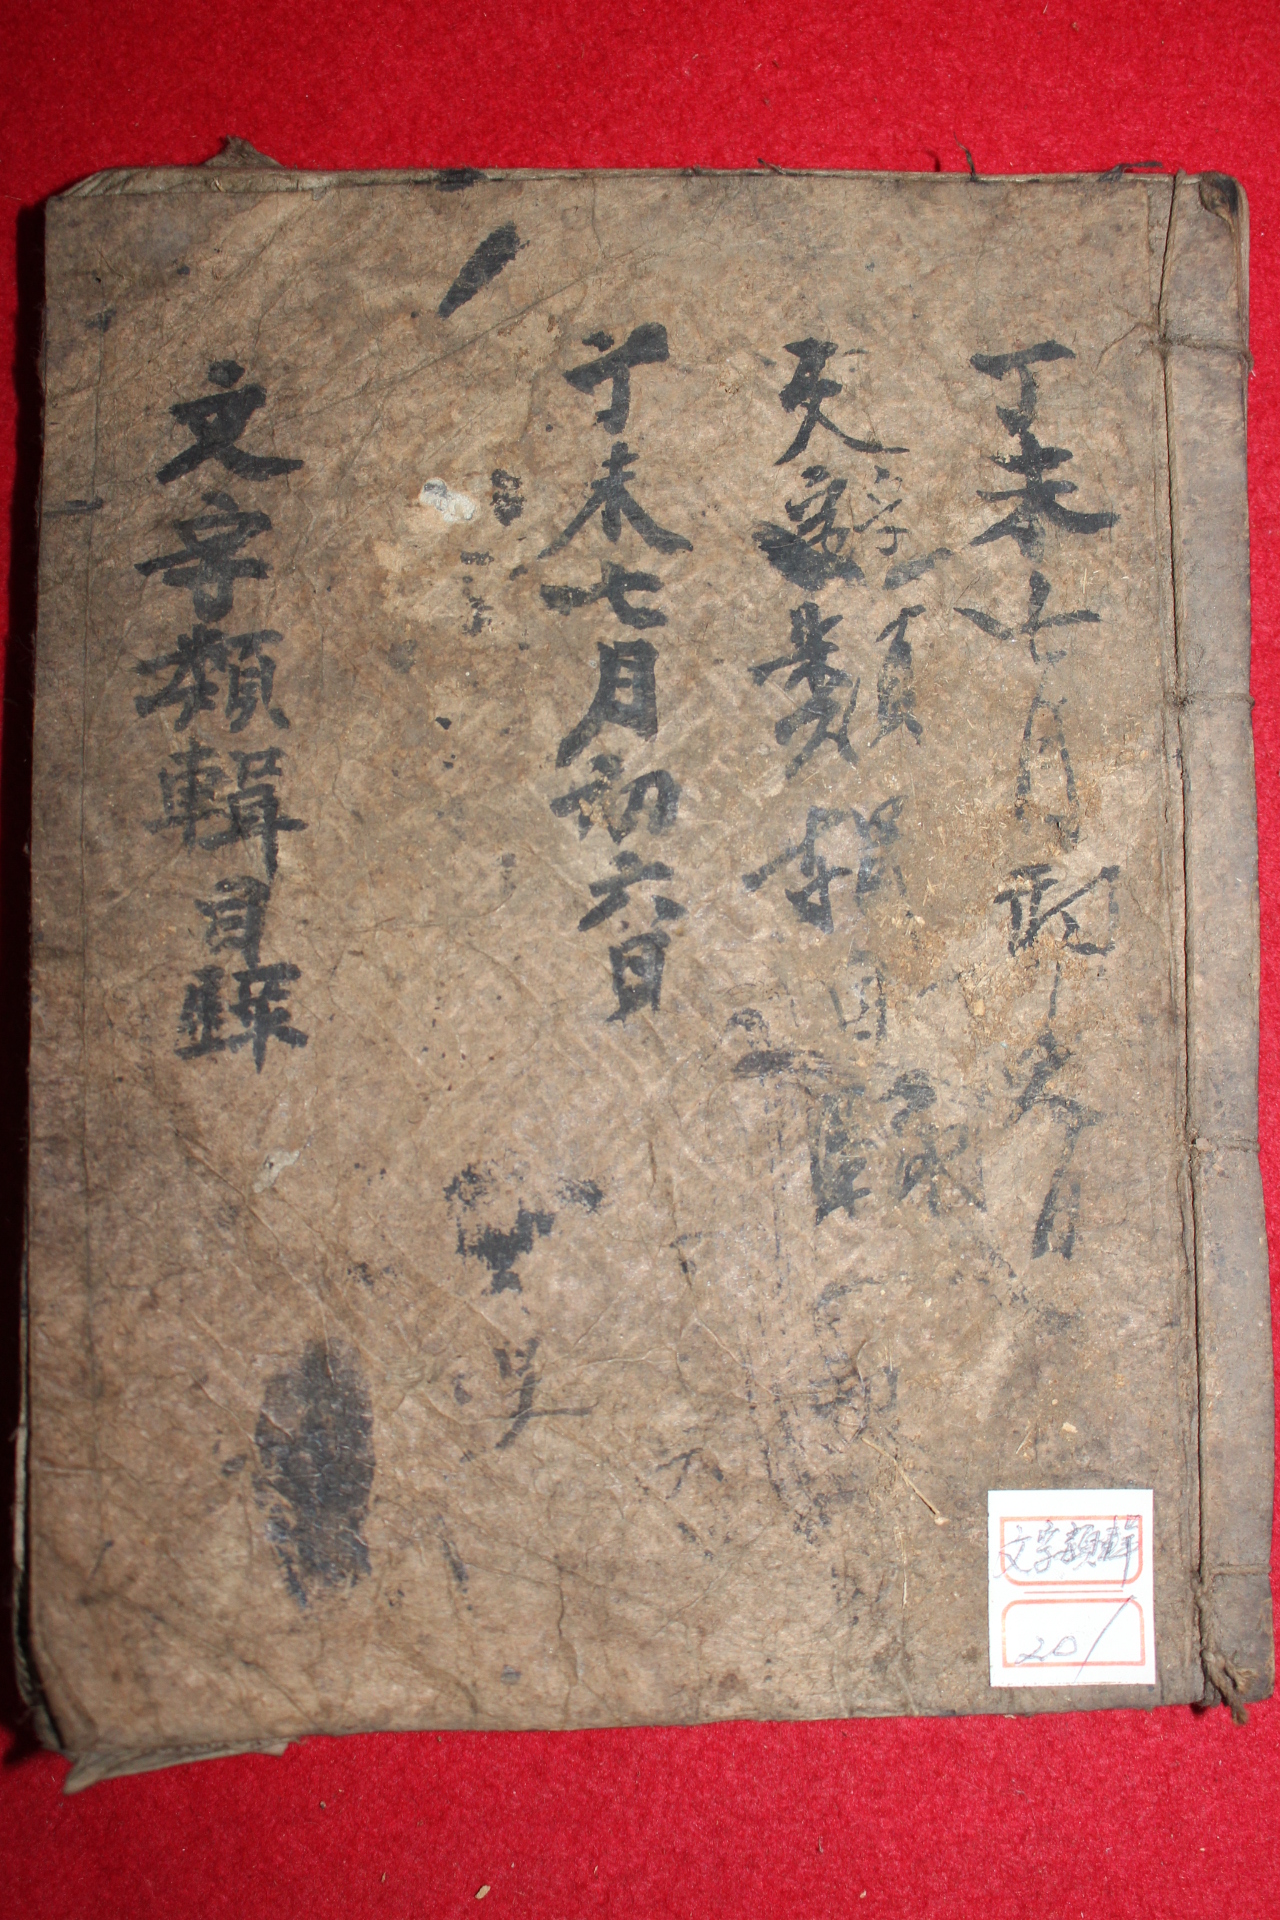 丁未七月初六日
文字類輯目錄
丁未七月初六日
文字類輯目錄
文字類輯
20/